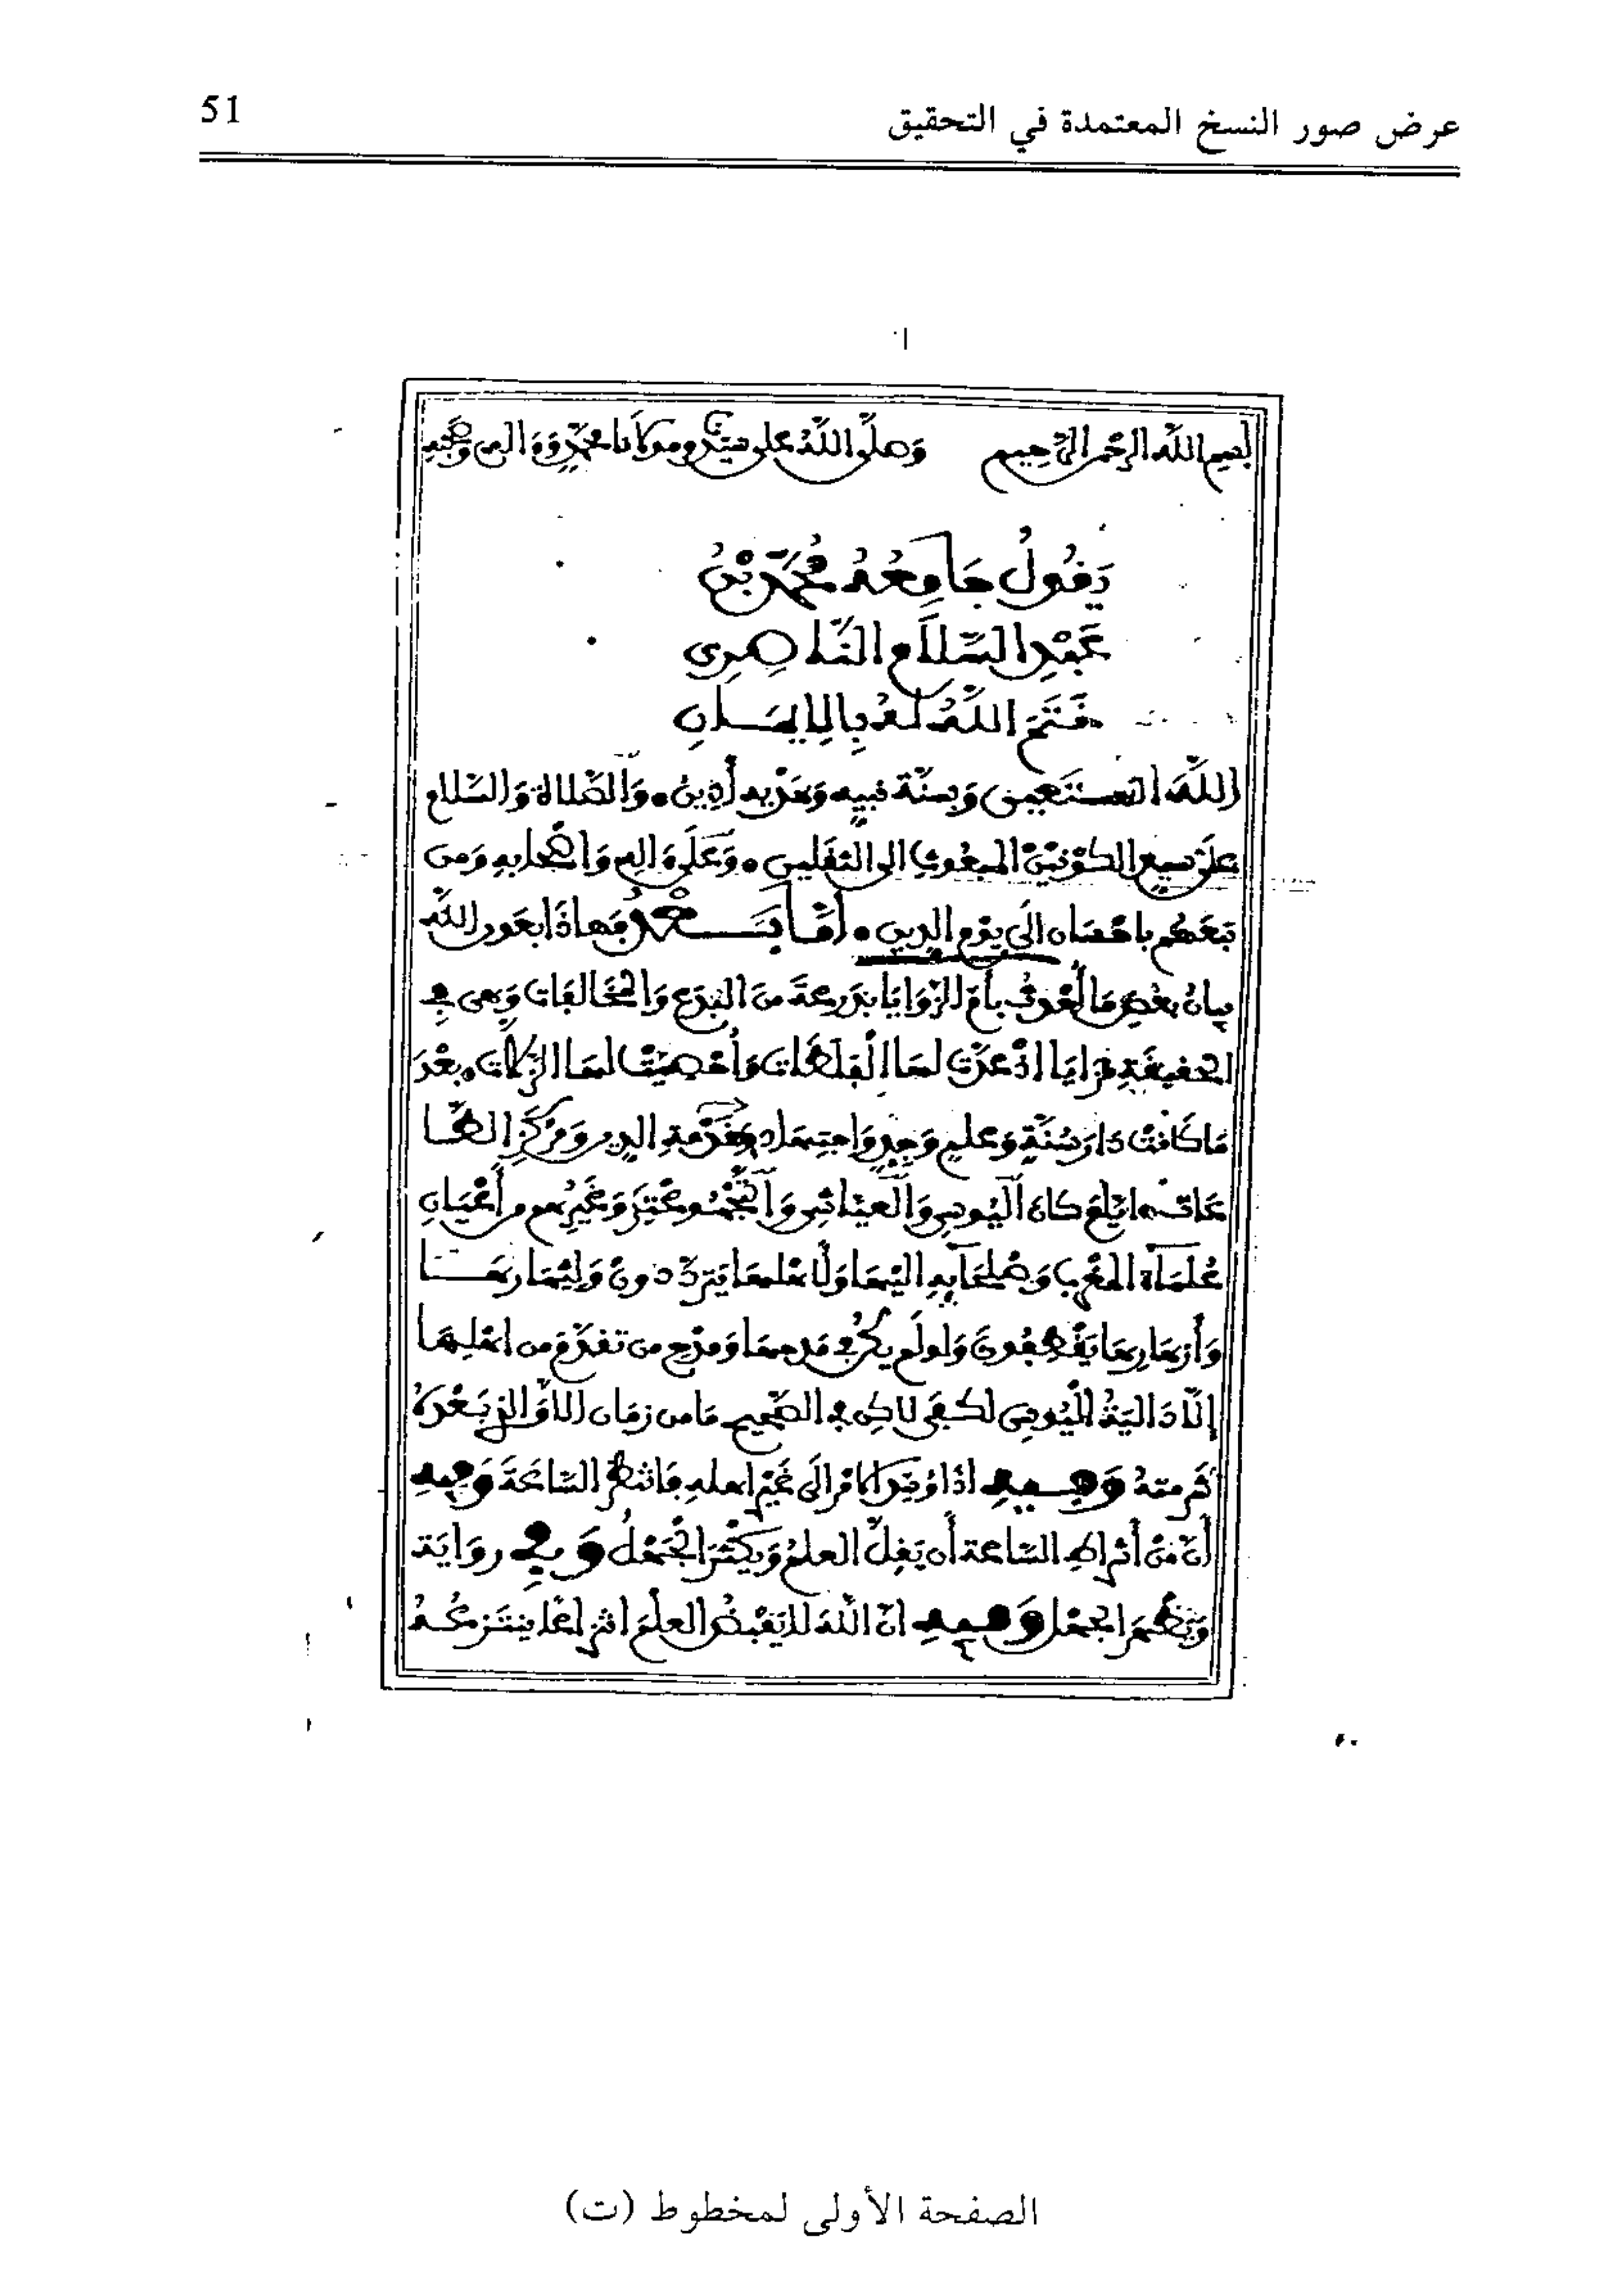 عرض صور النسخ المعتمدة في التحقيق
51
بسم الله الرحمن الرحيم وصلى الله على سيدنا ومولانا محمد وءاله وصحبه
يقول جامعه محمد بن
عبد السلام الناصري
ختم الله له بالايمان
الله استعين وبسنة نبيه وهديه أدين والصلاة والسلام
على سيد الكونين المبعوث الى الثقلين وعلى ءاله واصحابه ومن
تبعهم باحسان الى يوم الدين أما بعد فهاذا بعون الله
بيان بعض ما أحدث بأم الزوايا بدرعة من البدع والمخالفات وهي في
الحقيقة رزايا اذ عزت لها الصفات وأحصيت لها الزلات بعد
ما كانت دار سنة وعلم وجد واجتهاد وخدمة الدين ومركز الها
كان اليوسي والعياشي وغيرهم من أعيان
علماء المغرب وصلحايه اليها ولأهلها يترددون واليها ربما
وأزهارها يقطفون ولو لم يكن في مدحها ومدح من تقدم من اهلها
إلا دالية اليوسي لكفى لاكن في الصحيح ما من زمان إلا والذي بعده
شر منه وفيه اذا وسد الامر الى غير اهله فانتظر الساعة وفيه
أن من أشراط الساعة أن يقل العلم ويكثر الجهل وفي رواية
ويظهر الجهل وفيه ان الله لا يقبض العلم انتزاعا ينتزعه
الصفحة الأولى لمخطوط (ت)